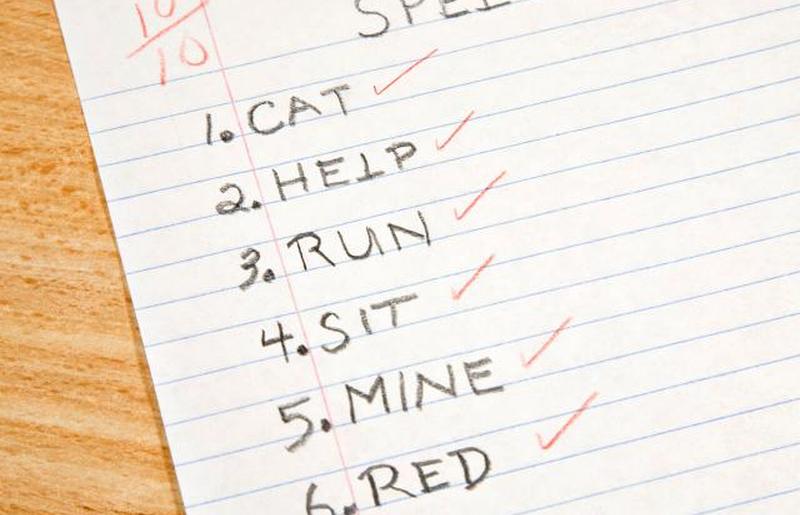 10
10
1. CAT
2. HELP
3. RUN
4. SIT
5. MINE
6. RED